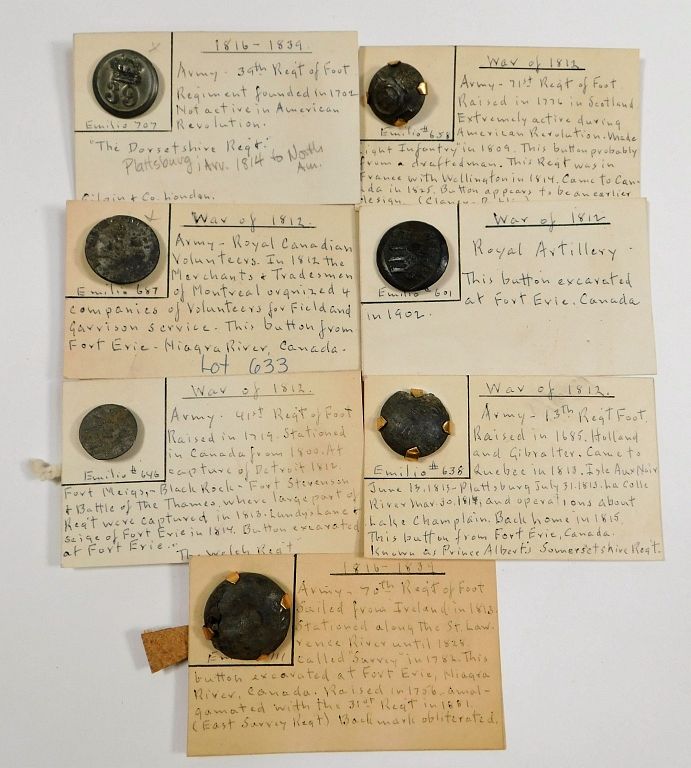 1816-1839.
39
Emilio 707
Army - 39th Reg't of Foot
Regiment founded in 1702
Not active in American
Revolution.
"The Dorsetshire Reg't."
Plattsburg; Arr. 1814 to North
Am.
& Co. London.
War of 1812
Emilio # 658
Army - 71st Reg't of Foot
Raised in 1776 in Scotland
Extremely active during
American Revolution. Made
ight Infantry" in 1809. This button probably
from a drafted man. This Reg't was in
France with Wellington in 1814. Came to Can-
da in 1825. Button appears to be an earlier
design.
War of 1812.
Emilio 687
Army - Royal Canadian
Volunteers. In 1812 the
Merchants & Tradesmen
of Montreal orgnized 4
companies of Volunteers for Field and
Garrison service. This button from
Fort Erie - Niagra River, Canada.
Lot 633
War of 1812
Emilio # 601
Royal Artillery.
This button excavated
at Fort Erie. Canada
in 1902.
War of 1812.
Emilio # 646
Army - 41st Reg't of Foot
Raised in 1719. Stationed
in Canada from 1800. At
capture of Detroit 1812.
Fort Meigs, - Black Rock - Fort Stevenson
& Battle of The Thames, where large part of
Reg't were captured in 1813. Lundys Lane &
seige of Fort Erie in 1814. Button excavated
at Fort Erie.
The Welch Reg't
War of 1812.
Emilio # 638
Army - 13th Reg't Foot.
Raised in 1685. Holland
and Gibralter. Came to
Quebec in 1813. Isle Aux Noir
June 13. 1813 - Plattsburg July 31. 1813. La Colle
River Mar. 30. 1814, and operations about
Lake Champlain. Back home in 1815.
This button from Fort Erie, Canada.
Known as Prince Albert's Somersetshire Reg't.
1816-1839
Army - 70th Reg't of Foot
Sailed from Ireland in 1813.
Stationed along the St. Law-
rence River until 1825.
Called "Surrey" in 1782. This
button excavated at Fort Erie, Niagra
River, Canada. Raised in 1756. amal-
gamated with the 31st Reg't in 1881.
(East Surrey Reg't) Backmark obliterated.